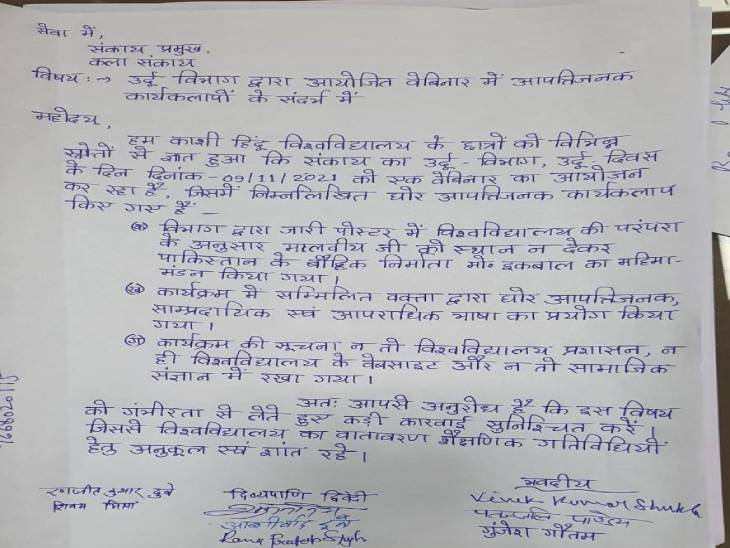 सेवा में,
संकाय प्रमुख,
कला संकाय
विषय :→ उर्दू विभाग द्वारा आयोजित वेबिनार में आपत्तिजनक
कार्यकलापों के संदर्भ में
महोदय,
हम काशी हिंदू विश्वविद्यालय के छात्रों को विभिन्न
स्रोतों से ज्ञात हुआ कि संकाय का उर्दू-विभाग, उर्दू-दिवस
के दिन दिनांक-09/11/2021 को एक वेबिनार का आयोजन
कर रहा है, जिसमें निम्नलिखित घोर आपत्तिजनक कार्यकलाप
किए गए हैं —
विभाग द्वारा जारी पोस्टर में विश्वविद्यालय की परंपरा
के अनुसार मालवीय जी को स्थान न देकर
पाकिस्तान के बौद्धिक निर्माता मो० इकबाल का महिमा-
मंडन किया गया।
कार्यक्रम में सम्मिलित वक्ता द्वारा घोर आपत्तिजनक,
साम्प्रदायिक एवं आपराधिक भाषा का प्रयोग किया
गया।
कार्यक्रम की सूचना न तो विश्वविद्यालय प्रशासन, न
ही विश्वविद्यालय के वेबसाइट और न तो सामाजिक
संज्ञान में रखा गया।
अतः आपसे अनुरोध है कि इस विषय
को गंभीरता से लेते हुए कड़ी कारवाई सुनिश्चित करें।
जिससे विश्वविद्यालय का वातावरण शैक्षणिक गतिविधियों
हेतु अनुकूल एवं शांत रहे।
भवदीय
रनजीत कुमार दुबे
दिव्यपाणि द्विवेदी
Vivek Kumar Shukla
पतञ्जलि पाण्डेय
गुंजेश गौतम